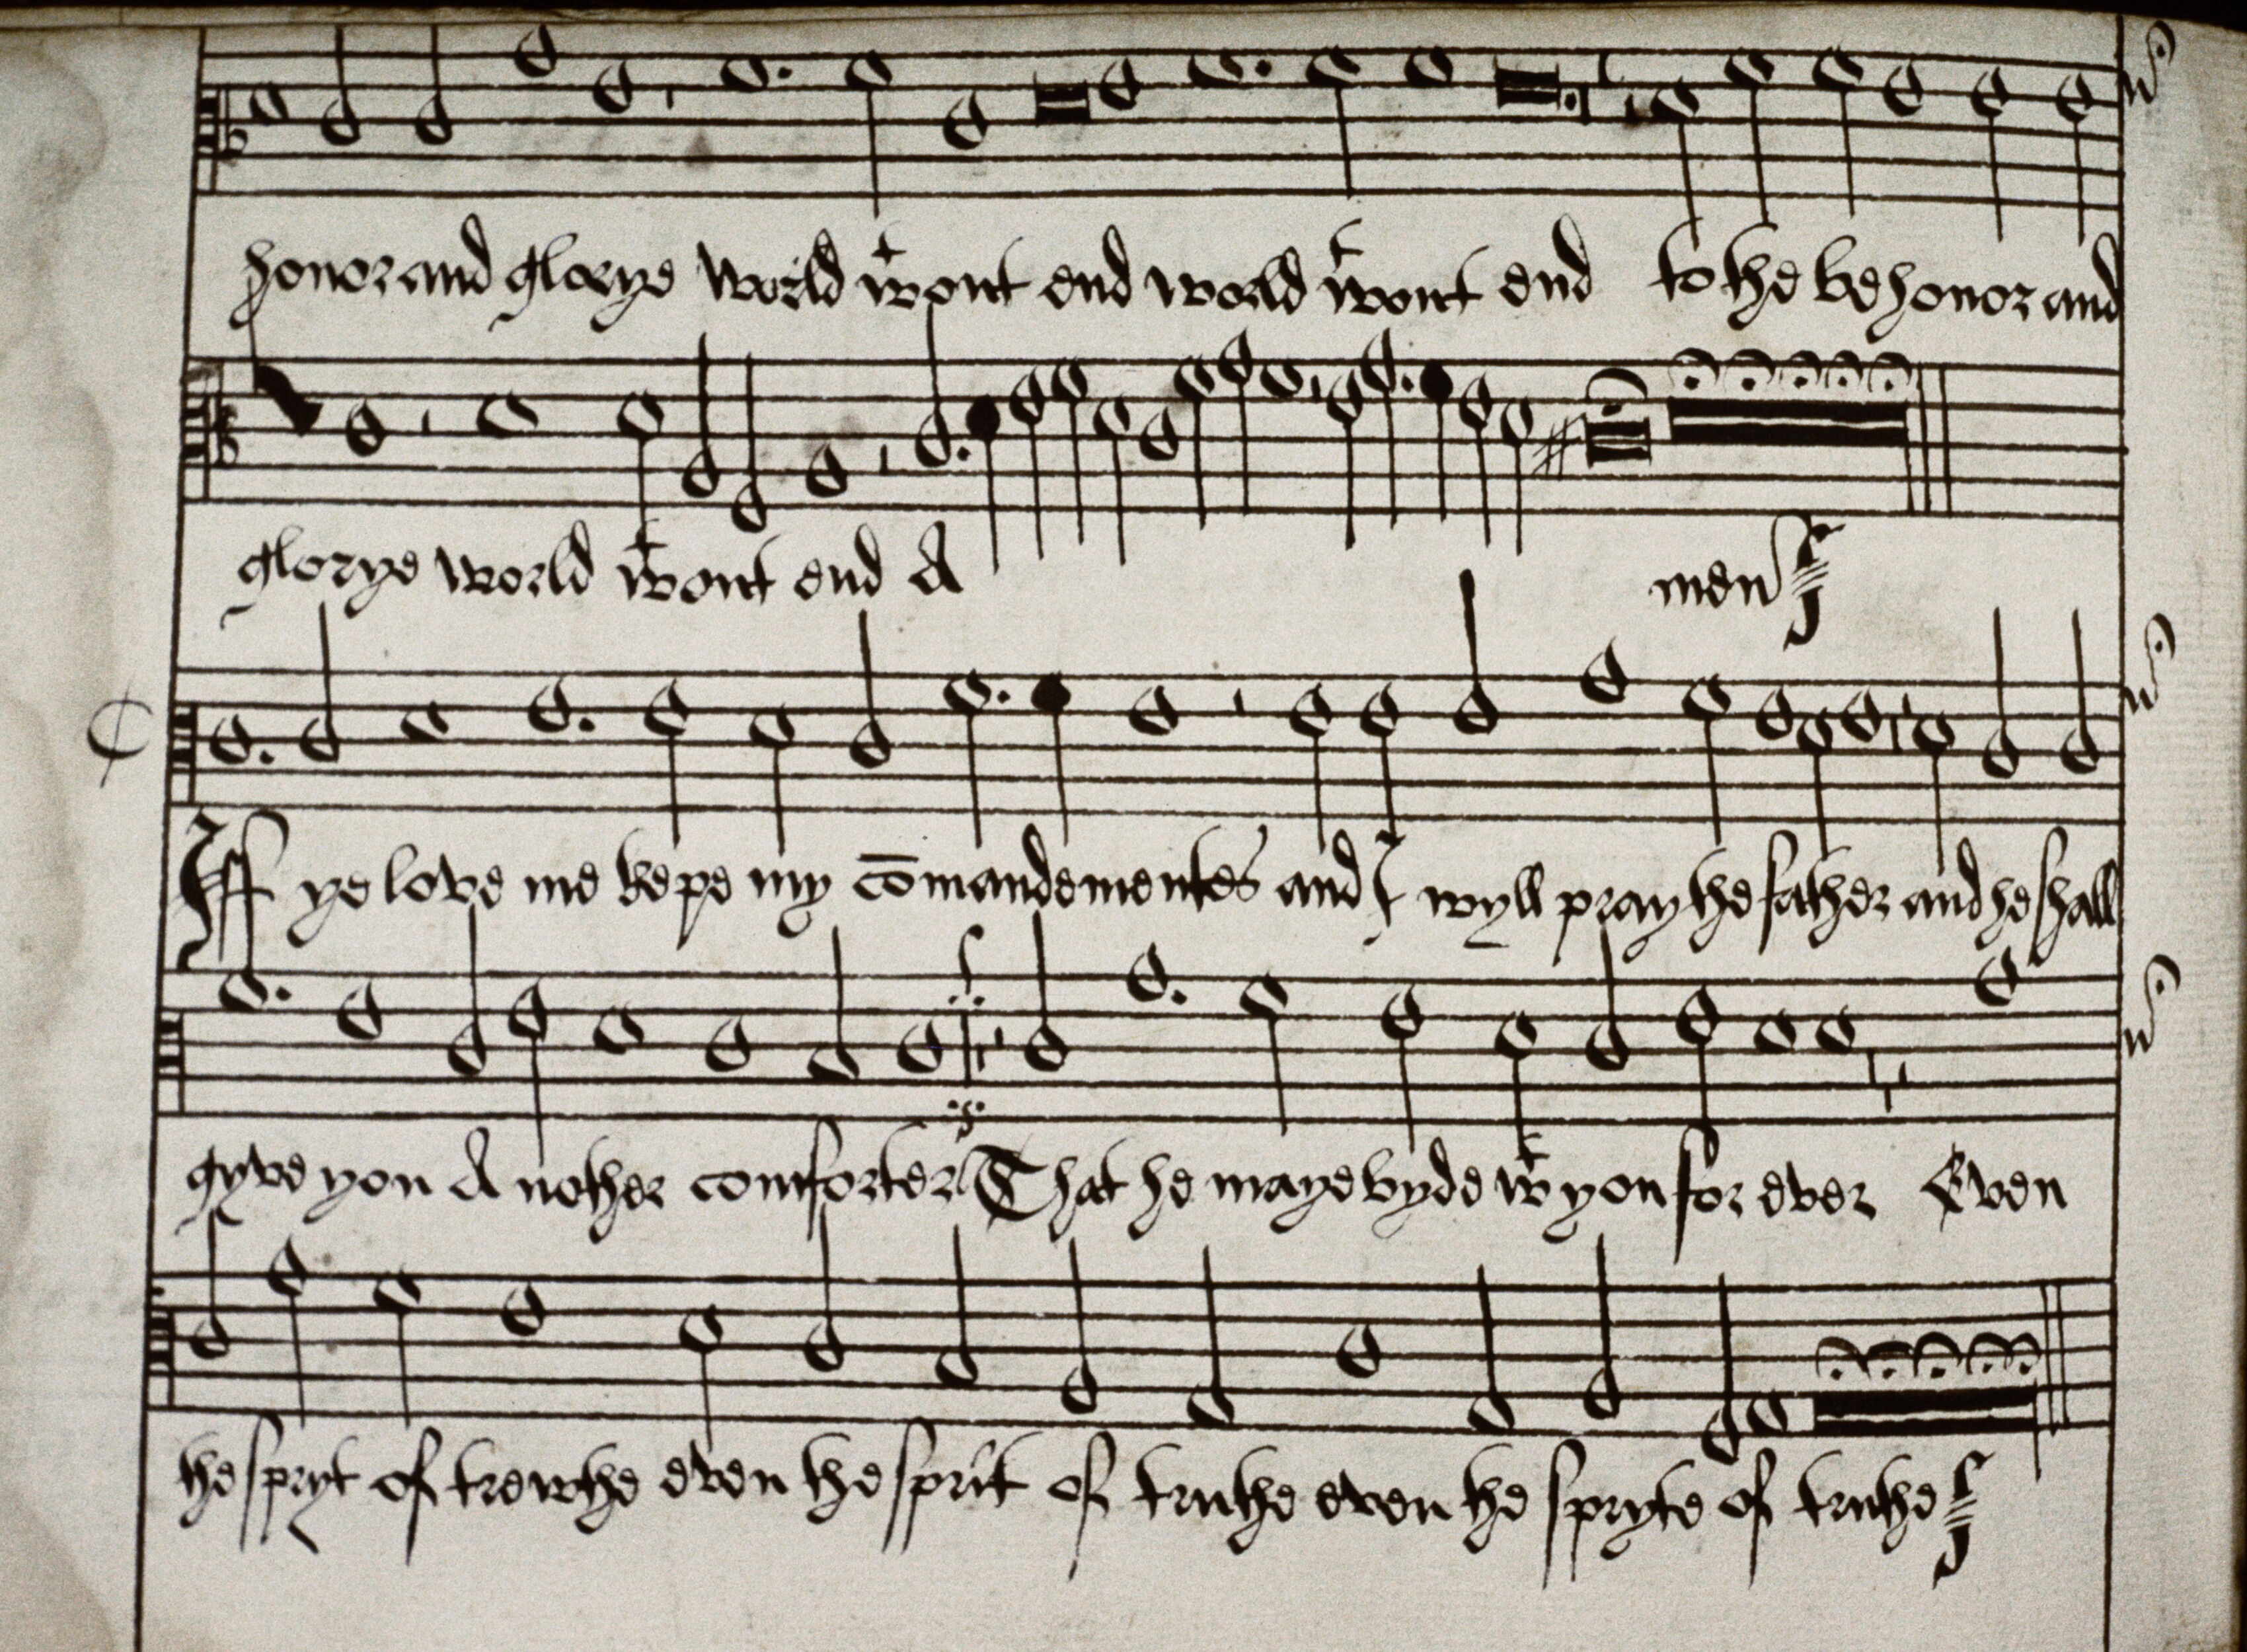 honor and glorye world wᵗ owt end world wᵗ owt end to the be honor and
glorye world wᵗ owt end A men
Iff ye love me kepe my cōmandementes and I wyll pray the father and he shall
gyve you A nother comforter That he maye byde wᵗ you for ever Even
the spryt of trewthe even the sprit of truthe even the spryte of truthe